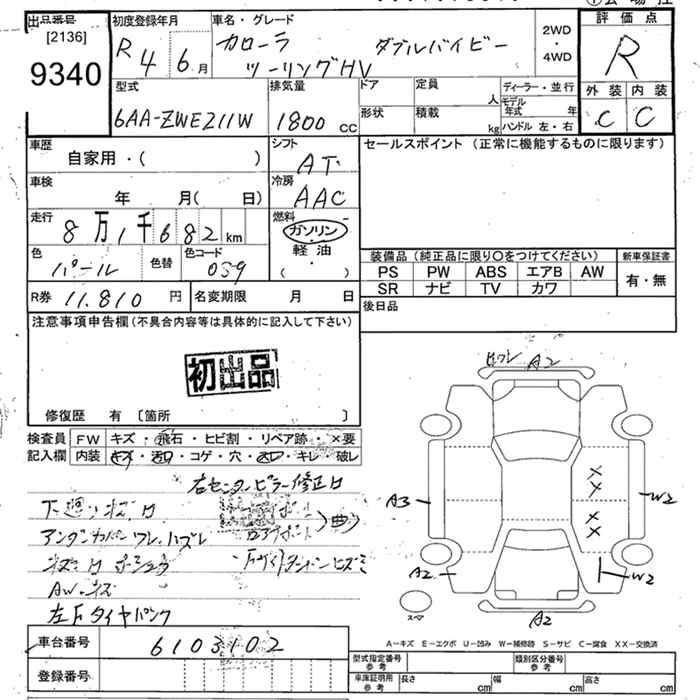 出品番号
[2136]
9340
初度登録年月
R 4 6 月
車名・グレード
カローラ ダブルバイビー
ツーリングHV
2WD
・
4WD
評価点
R
外装 内装
C C
型式
6AA-ZWE211W
排気量
1800 CC
ドア
形状
定員 人
積載 kg
ディーラー・並行
モデル年式 年
ハンドル 左・右
車歴
自家用・( )
シフト
AT
車検
年 月( 日)
冷房
AAC
走行
8万1千682 km
燃料
ガソリン
・
軽油
( ・ )
色
パール
色替
色コード
059
R券 11.810 円
名変期限 月 日
セールスポイント (正常に機能するものに限ります)
装備品 (純正品に限り○をつけてください)
新車保証書
PS PW ABS エアB AW
SR ナビ TV カワ
有・無
後日品
注意事項申告欄(不具合内容等は具体的に記入して下さい)
初出品
修復歴 有 〔箇所 〕
検査員記入欄
FW キズ・飛石・ヒビ割・リペア跡・×要
内装 キズ・汚れ・コゲ・穴・・キレ・破レ
右センターピラー修正有
下廻り
アンダーカバーワレ,ハズレ
AWキズ
左Fタイヤパンク
車台番号 6103102
登録番号
A2
A3
A2
W2
W2
A2
A-キズ E-エクボ U-凹み W-補修跡 S-サビ C-腐食 XX-交換済
型式指定番号
参考
類別区分番号
参考
車庫証明用
参考
長さ cm
幅 cm
高さ cm